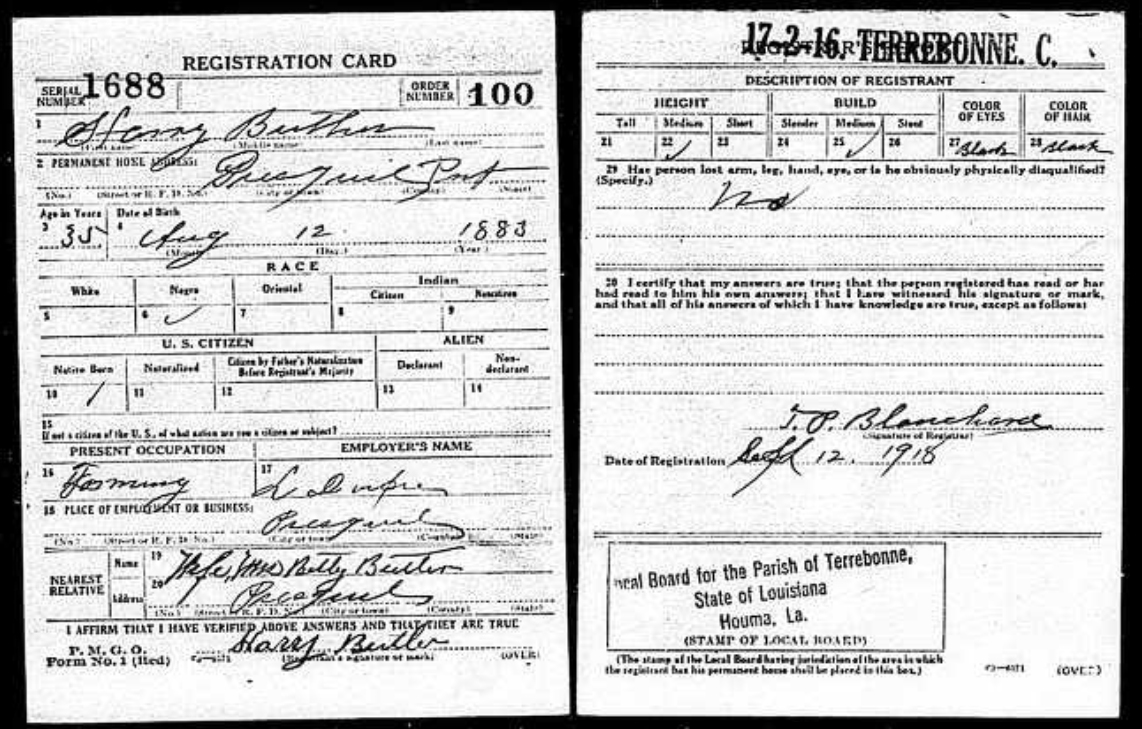 REGISTRATION CARD
SERIAL NUMBER 1688 ORDER NUMBER 100
1 Harry Butler
(First name) (Middle name) (Last name)
2 PERMANENT HOME ADDRESS:
(No.) (Street or R. F. D. No.) (City or town) (County) (State)
Age in Years Date of Birth
3 35 4 Aug 12 1883
(Month) (Day) (Year)
RACE
White Negro Oriental Indian
Citizen Noncitizen
5 6 ✓ 7 8 9
U. S. CITIZEN ALIEN
Native Born Naturalized Citizen by Father's Naturalization Before Registrant's Majority Declarant Non-declarant
10 / 11 12 13 14
15
If not a citizen of the U. S., of what nation are you a citizen or subject?
PRESENT OCCUPATION EMPLOYER'S NAME
16 Farming 17
18 PLACE OF EMPLOYMENT OR BUSINESS:
(No.) (Street or R. F. D. No.) (City or town) (County) (State)
NEAREST RELATIVE Name 19 Wife, Mrs Betty Butler
Address 20
(No.) (Street or R. F. D. No.) (City or town) (County) (State)
I AFFIRM THAT I HAVE VERIFIED ABOVE ANSWERS AND THAT THEY ARE TRUE
P. M. G. O.
Form No. 1 (Red) Harry Butler
(Registrant's signature or mark) (OVER)
17-2-16. TERREBONNE. C.
DESCRIPTION OF REGISTRANT
HEIGHT BUILD COLOR OF EYES COLOR OF HAIR
Tall Medium Short Slender Medium Stout
21 22 ✓ 23 24 25 ✓ 26 27 Black 28 Black
29 Has person lost arm, leg, hand, eye, or is he obviously physically disqualified?
(Specify.)
No
30 I certify that my answers are true; that the person registered has read or has
had read to him his own answers; that I have witnessed his signature or mark,
and that all of his answers of which I have knowledge are true, except as follows:
T. P. Blanchard
(Signature of Registrar)
Date of Registration Sept 12. 1918
Local Board for the Parish of Terrebonne,
State of Louisiana
Houma, La.
(STAMP OF LOCAL BOARD)
(The stamp of the Local Board having jurisdiction of the area in which
the registrant has his permanent home shall be placed in this box.)
(OVER)